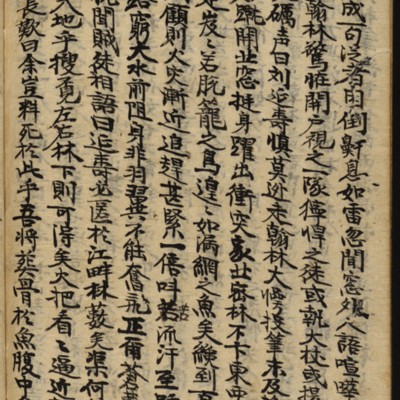 成一句從者困倒鼾息如雷忽聞窓外人語喧嘩
翰林驚怪開戶視之一隊獰悍之徒或執大杖或
礪声曰刘延壽慎莫迯走翰林大惊投筆未及
跳開北窓挺身躍出衝突家北密林不卞東
走岌々若脫籠之鳥遑々如漏網之魚矣纔到
顧則火突漸近追趕甚緊一倍叫苦流汗至
路窮大水前阻身非羽翼不能奮飛正爾蒼
聞賊徒相語曰延壽必匿於江畔林藪矣渠何
天地乎搜覓左右林下則可得矣火把看々逼近
長歎曰余豈料死於此乎吾將葬骨於魚腹中